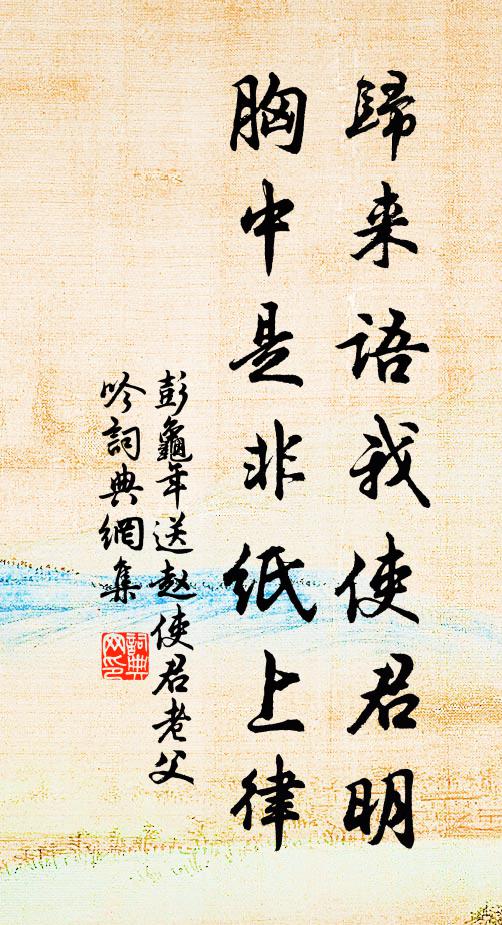 歸来語我使君明
胸中是非紙上律
彭龜年送赵使君老父
吟詞典網集
詞典
网印